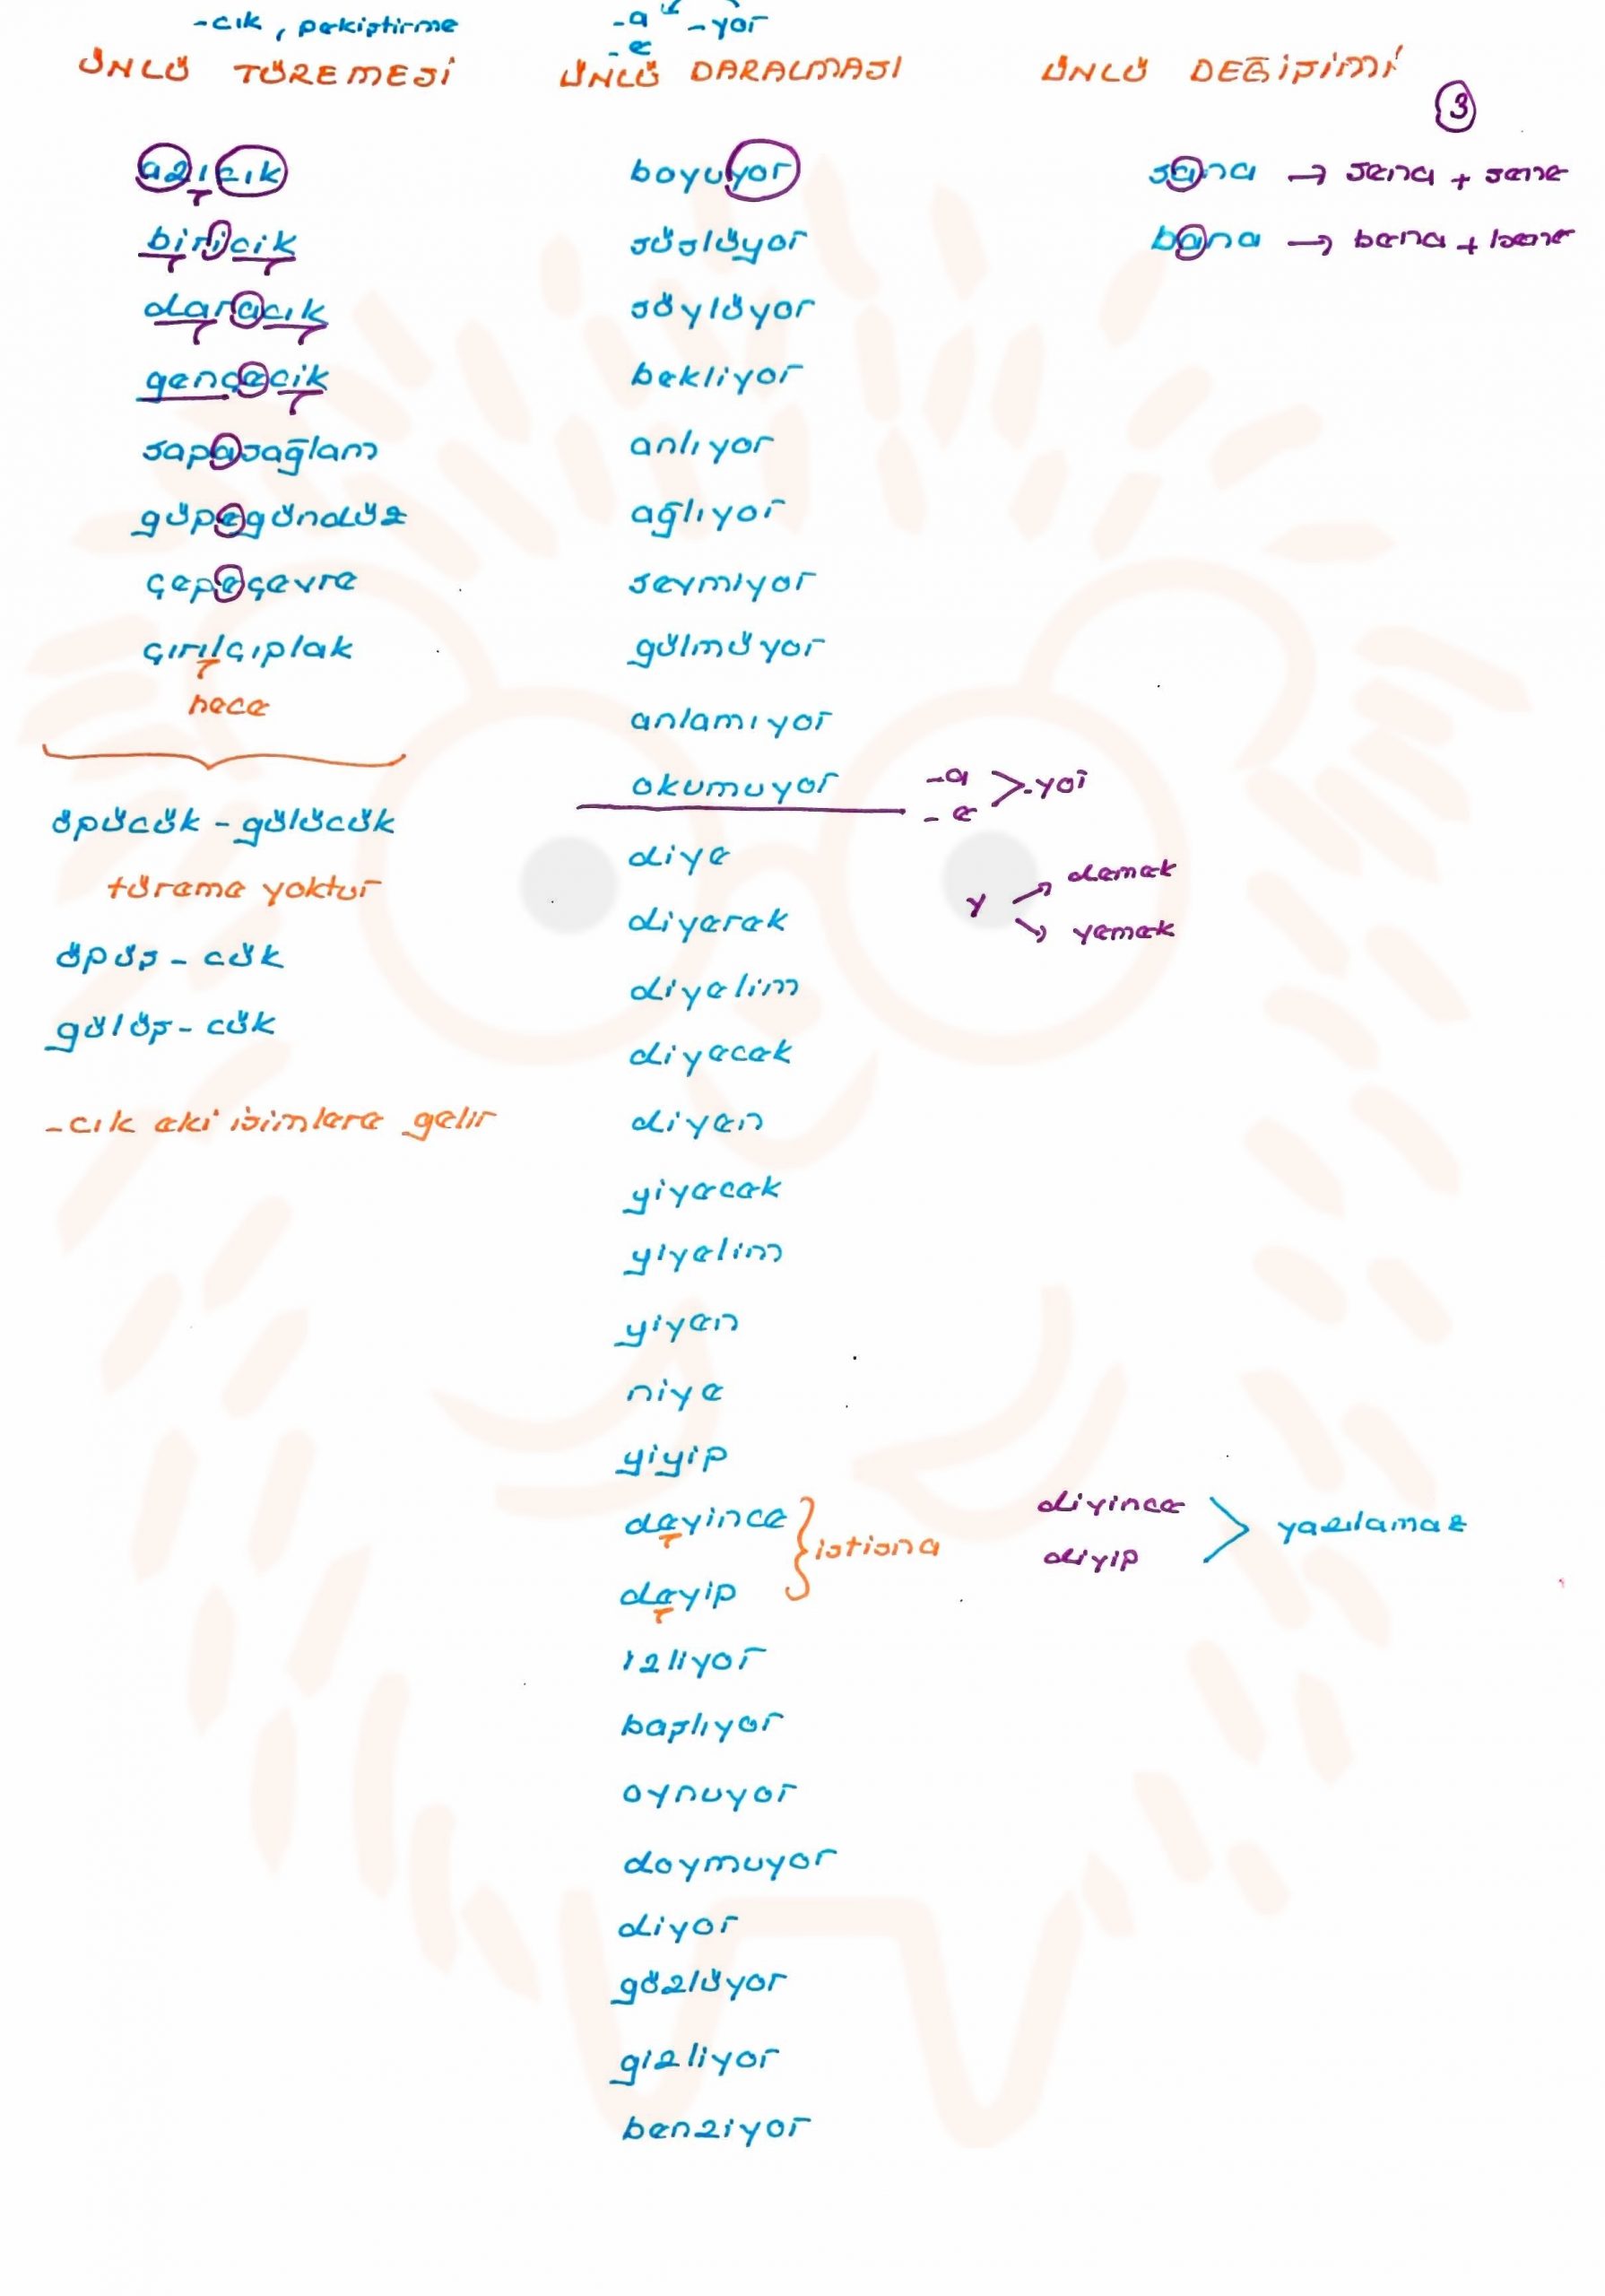 -cık, pekiştirme
ÜNLÜ TÜREMESİ
azıcık
biricik
daracık
gencecik
sapasağlam
güpegündüz
çepeçevre
çırılçıplak
hece
öpücük - gülücük
türeme yoktur
öpüş - cük
gülüş - cük
-cık eki isimlere gelir
-a -yor
-e
ÜNLÜ DARALMASI
boyuyor
süslüyor
söylüyor
bekliyor
anlıyor
ağlıyor
sevmiyor
gülmüyor
anlamıyor
okumuyor -a > -yor
-e
diye
diyerek
y demek
yemek
diyelim
diyecek
diyen
yiyecek
yiyelim
yiyen
niye
yiyip
deyince } istisna
deyip
diyince > yazılamaz
diyip
izliyor
başlıyor
oynuyor
doymuyor
diyor
gözlüyor
gizliyor
benziyor
ÜNLÜ DEĞİŞİMİ
3
sana → sena + sene
bana → bena + bene